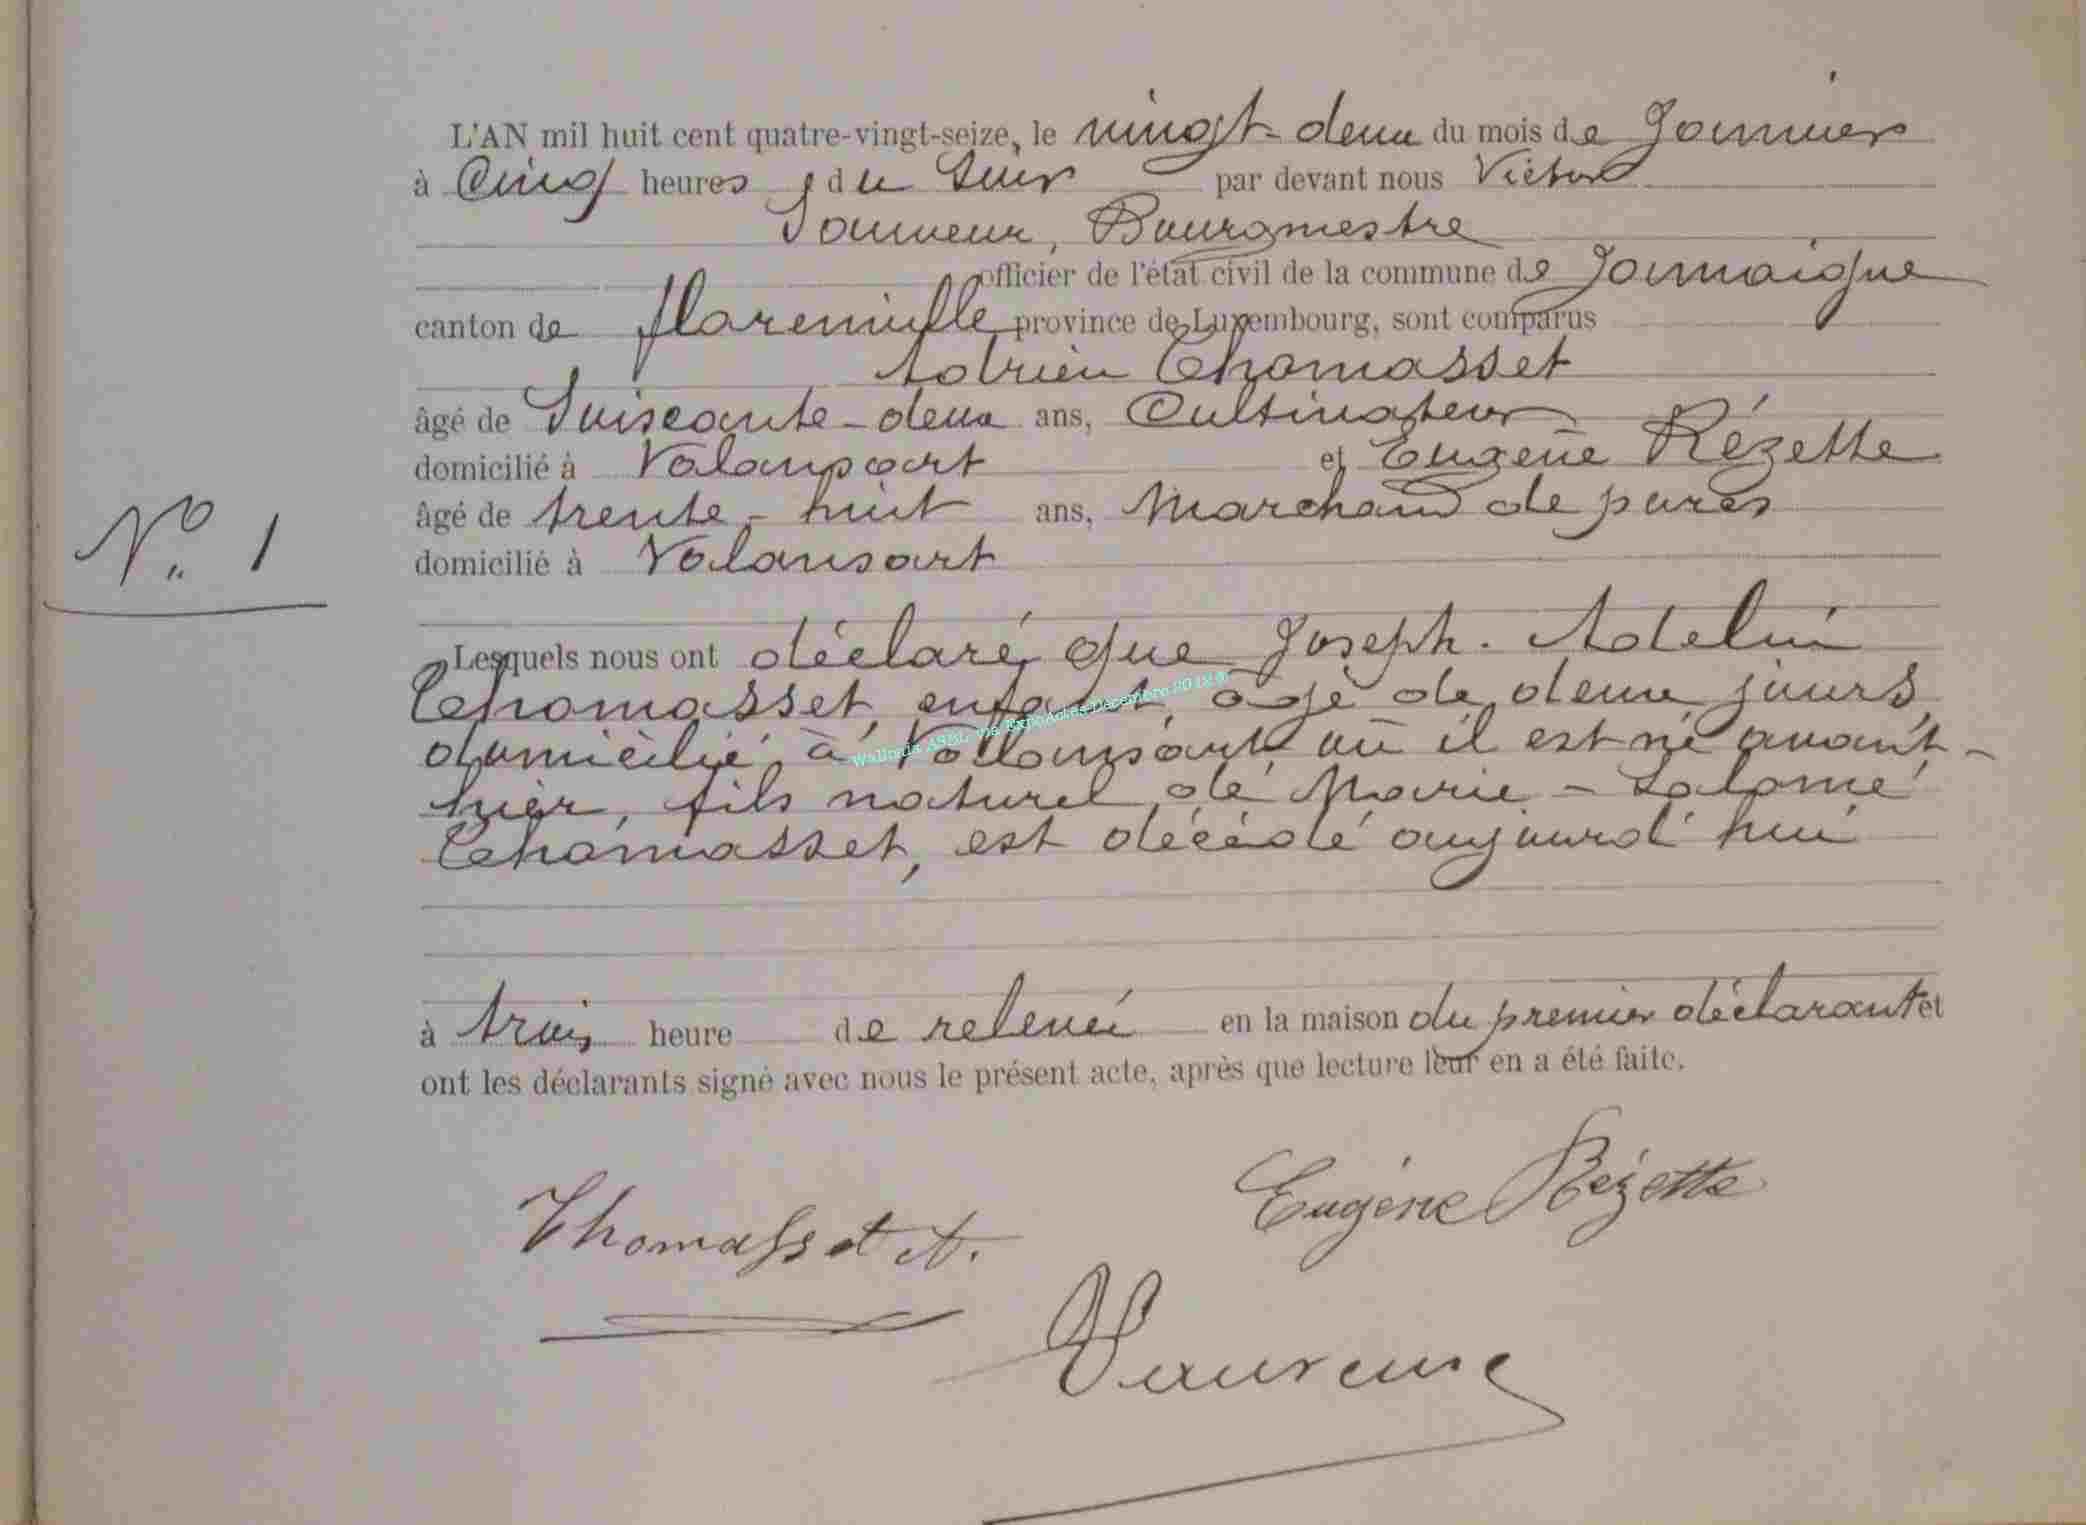 L'AN mil huit cent quatre-vingt-seize, le vingt-deux du mois de Janvier
à Cinq heures du Soir par devant nous Victor
Sauveur, Bourgmestre
officier de l'état civil de la commune de Jamoigne
canton de florenville province de Luxembourg, sont comparus
Adrien Thomasset
âgé de Soiscante-deux ans, Cultivateur
domicilié à Valansart et Eugène Rézette
âgé de trente-huit ans, Marchand de porcs
N° 1
domicilié à Valansart
Lesquels nous ont déclaré que Joseph-Adelin
Thomasset, enfant, âgé de deux jours,
domicilié à Valansart où il est né avant-
hier, fils naturel de Marie-Salomé
Thomasset, est décédé aujourd'hui
à trois heure de relevée en la maison du premier déclarant et
ont les déclarants signé avec nous le présent acte, après que lecture leur en a été faite.
Thomasset A.
Eugène Rézette
VSauveur